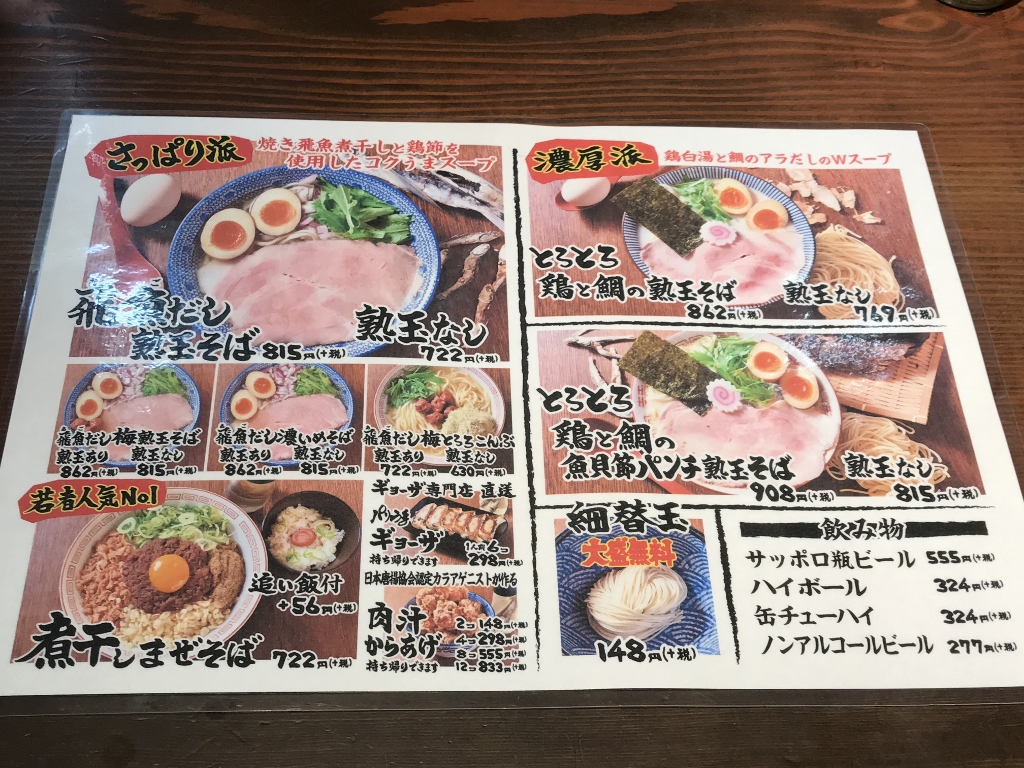 さっぱり派
焼き飛魚煮干しと鶏節を
使用したコクうまスープ
飛魚だし
熟玉そば 815円(+税)
熟玉なし
722円(+税)
飛魚だし梅熟玉そば
熟玉あり 熟玉なし
862円(+税) 815円(+税)
飛魚だし濃いめそば
熟玉あり 熟玉なし
862円(+税) 815円(+税)
飛魚だし梅とろろこんぶ
熟玉あり 熟玉なし
722円(+税) 630円(+税)
若者人気No1
追い飯付
+56円(+税)
煮干しまぜそば 722円(+税)
ギョーザ専門店 直送
ギョーザ
1人前6コ
298円(+税)
持ち帰りできます
日本唐揚協会認定カラアゲニストが作る
肉汁
からあげ
持ち帰りできます
2コ 148円(+税)
4コ 298円(+税)
8コ 555円(+税)
12コ 833円(+税)
濃厚派
鶏白湯と鯛のアラだしのWスープ
とろとろ
鶏と鯛の熟玉そば 熟玉なし
862円(+税) 769円(+税)
とろとろ
鶏と鯛の
魚貝節パンチ熟玉そば 熟玉なし
908円(+税) 815円(+税)
細替玉
大盛無料
148円(+税)
飲み物
サッポロ瓶ビール 555円(+税)
ハイボール 324円(+税)
缶チューハイ 324円(+税)
ノンアルコールビール 277円(+税)